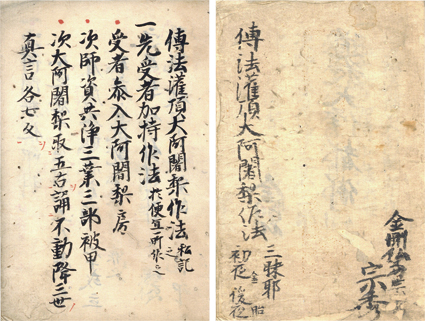 傳法灌頂大阿闍梨作法 私記
一先受者加持作法 於便宜所作之
受者參入大阿闍梨房
次師資共淨三業三部被甲
次大阿闍梨取五古誦不動降三世
真言各七反
傳法灌頂大阿闍梨作法
三昧耶
初夜 金
後夜 胎
金剛仏子
宗秀